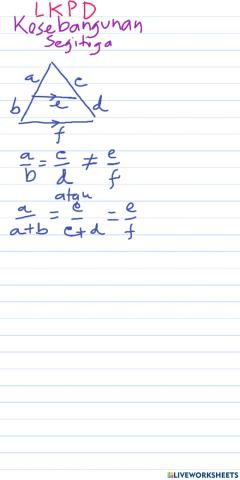 LKPD
Kesebangunan
Segitiga
a c
b e d
f
a/b = c/d ≠ e/f
atau
a/a+b = c/c+d = e/f
LIVEWORKSHEETS